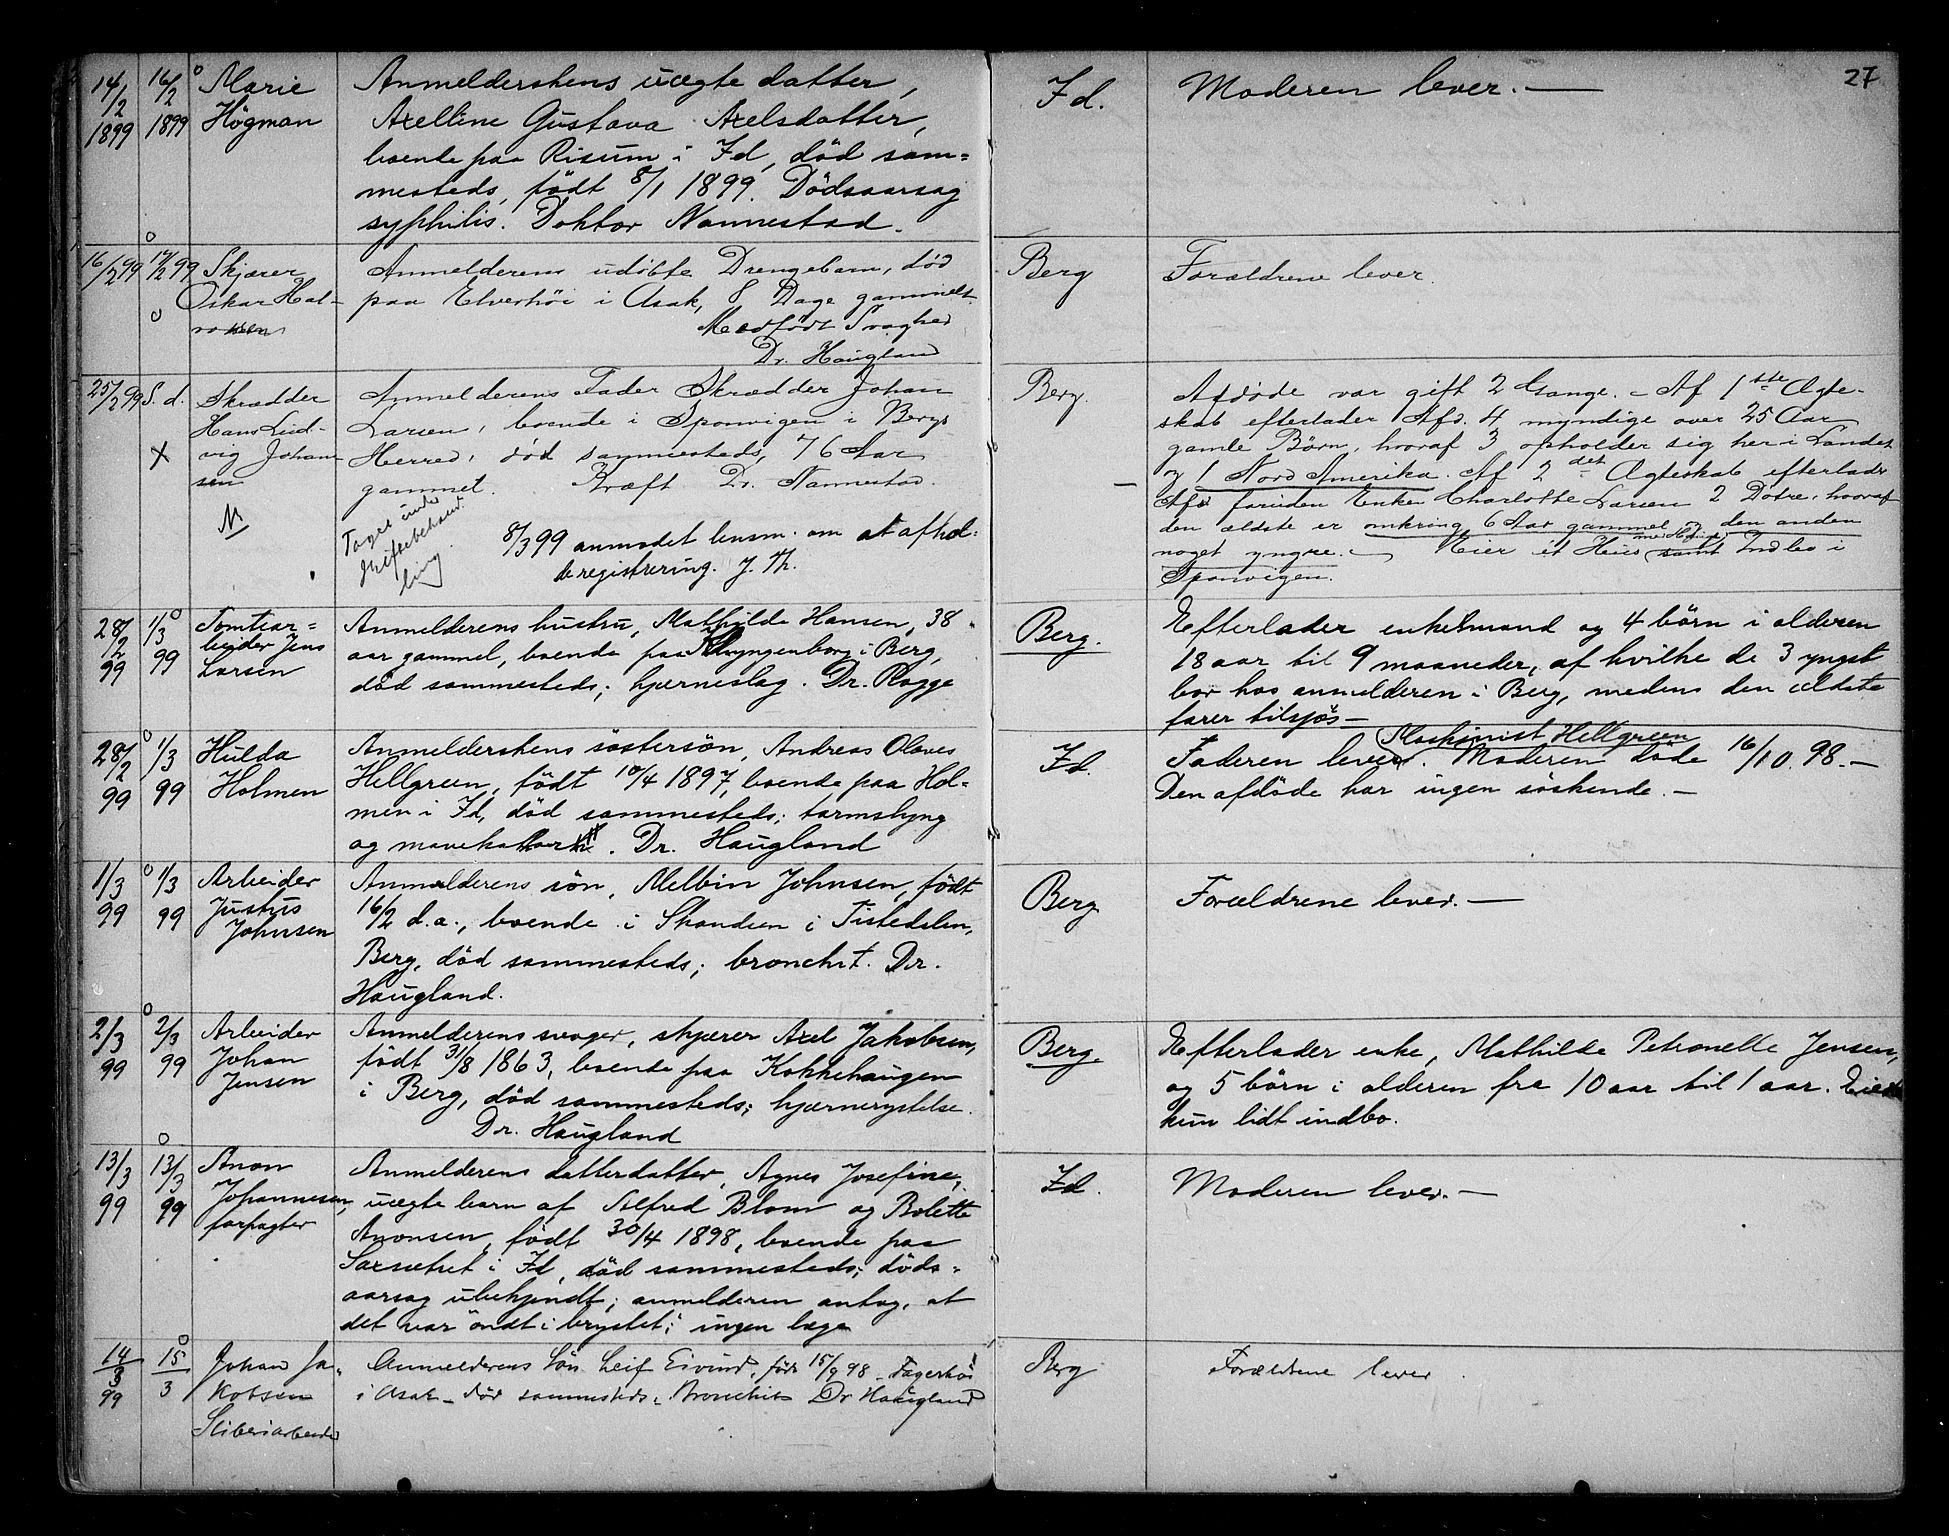 27
14/2 1899
16/2 1899
Marie
Högman
Anmelderskens uægte datter,
Axelline Gustava Axelsdatter,
boende paa Risum i Id, död sam=
mesteds, födt 8/1 1899. Dödsaarsag
syphilis. Doktor Nannestad.
Id.
Moderen lever. —
16/2 99
17/2 99
Skjærer
Oskar Hal-
Anmelderens udöbte Drengebarn, död
paa Elverhöi i Asak, 8 Dage gammelt.
Medfödt Svaghed
Dr. Haugland
Berg
Forældrene lever.
25/2 99
S. d.
X
Skrædder
Hans Lud-
vig Johan-
sen
Anmelderens Fader Skrædder Johan
Larsen, boende i Sponvigen i Bergs
Herred, död sammesteds, 76 Aar
gammel. Kræft Dr. Nannestad.
Taget under
skiftebehand-
ling
8/3 99 anmodet lensm. om at afhol-
de registrering. J. Th.
Berg.
Afdöde var gift 2 Gange. - Af 1ste Ægte-
skab efterlader Afd. 4 myndige over 25 Aar
gamle Börn, hvoraf 3 opholder sig her i Landet
og 1 Nord Amerika. Af 2det Ægteskab efterlader
Afd foruden Enken Charlotte Larsen 2 Dötre, hvoraf
den ældste er omkring 6 Aar gammel og den anden
noget yngre. - Eier et Huus samt Indbo i
Sponvigen.
28/2 99
1/3 99
Tomtear=
beider Jens
Larsen
Anmelderens hustru, Mathilde Hansen, 38
aar gammel, boende paa Klyngenborg i Berg,
död sammesteds; hjerneslag. Dr. Rogge
Berg.
Efterlader enkemand og 4 börn i alderen
18 aar til 9 maaneder, af hvilke de 3 yngst
bor hos anmelderen i Berg, medens den ældste
farer tilsjös —
28/2 99
1/3 99
Hulda
Holmen
Anmelderskens söstersön, Andreas Olaves
Hellgreen, födt 10/4 1897, boende paa Hol=
men i Id, död sammesteds; tarmslyng
og mavekatarrh. Dr. Haugland
Id.
Maskinist Hellgreen
Faderen lever. Moderen döde 16/10. 98. —
Den afdöde har ingen söskende. —
1/3 99
1/3 99
Arbeider
Justus
Johnsen
Anmelderens sön, Melbin Johnsen, födt
16/2 d.a., boende i Skandsen i Tistedalen,
Berg, död sammesteds; bronchit. Dr.
Haugland.
Berg
Forældrene lever. —
2/3 99
2/3 99
Arbeider
Johan
Jensen
Anmelderens svoger, skjærer Axel Jakobsen,
födt 31/8 1863, boende paa Kokkehaugen
i Berg, död sammesteds; hjernerystelse.
Dr. Haugland
Berg.
Efterlader enke, Mathilde Petronelle Jensen,
og 5 börn i alderen fra 10 aar til 1 aar. Eier
kun lidt indbo.
13/3 99
13/3 99
Anon
Johannesen,
forpagter
Anmelderens datterdatter, Agnes Josefine,
uægte barn af Alfred Blom og Bolette
Anonsen, födt 30/4 1898, boende paa
i Id, död sammesteds; döds=
aarsag ubekjendt; anmelderen antog, at
det var "ondt i brystet;" ingen læge
Id.
Moderen lever. —
14/3 99
15/3
Johan Ja-
kobsen
Sliberiarbeider
Anmelderens Sön Leif Eivind, födt 15/9 98 - Fagerhöi
i Asak - död sammesteds. Bronchit Dr Haugland
Berg
Forældrene lever